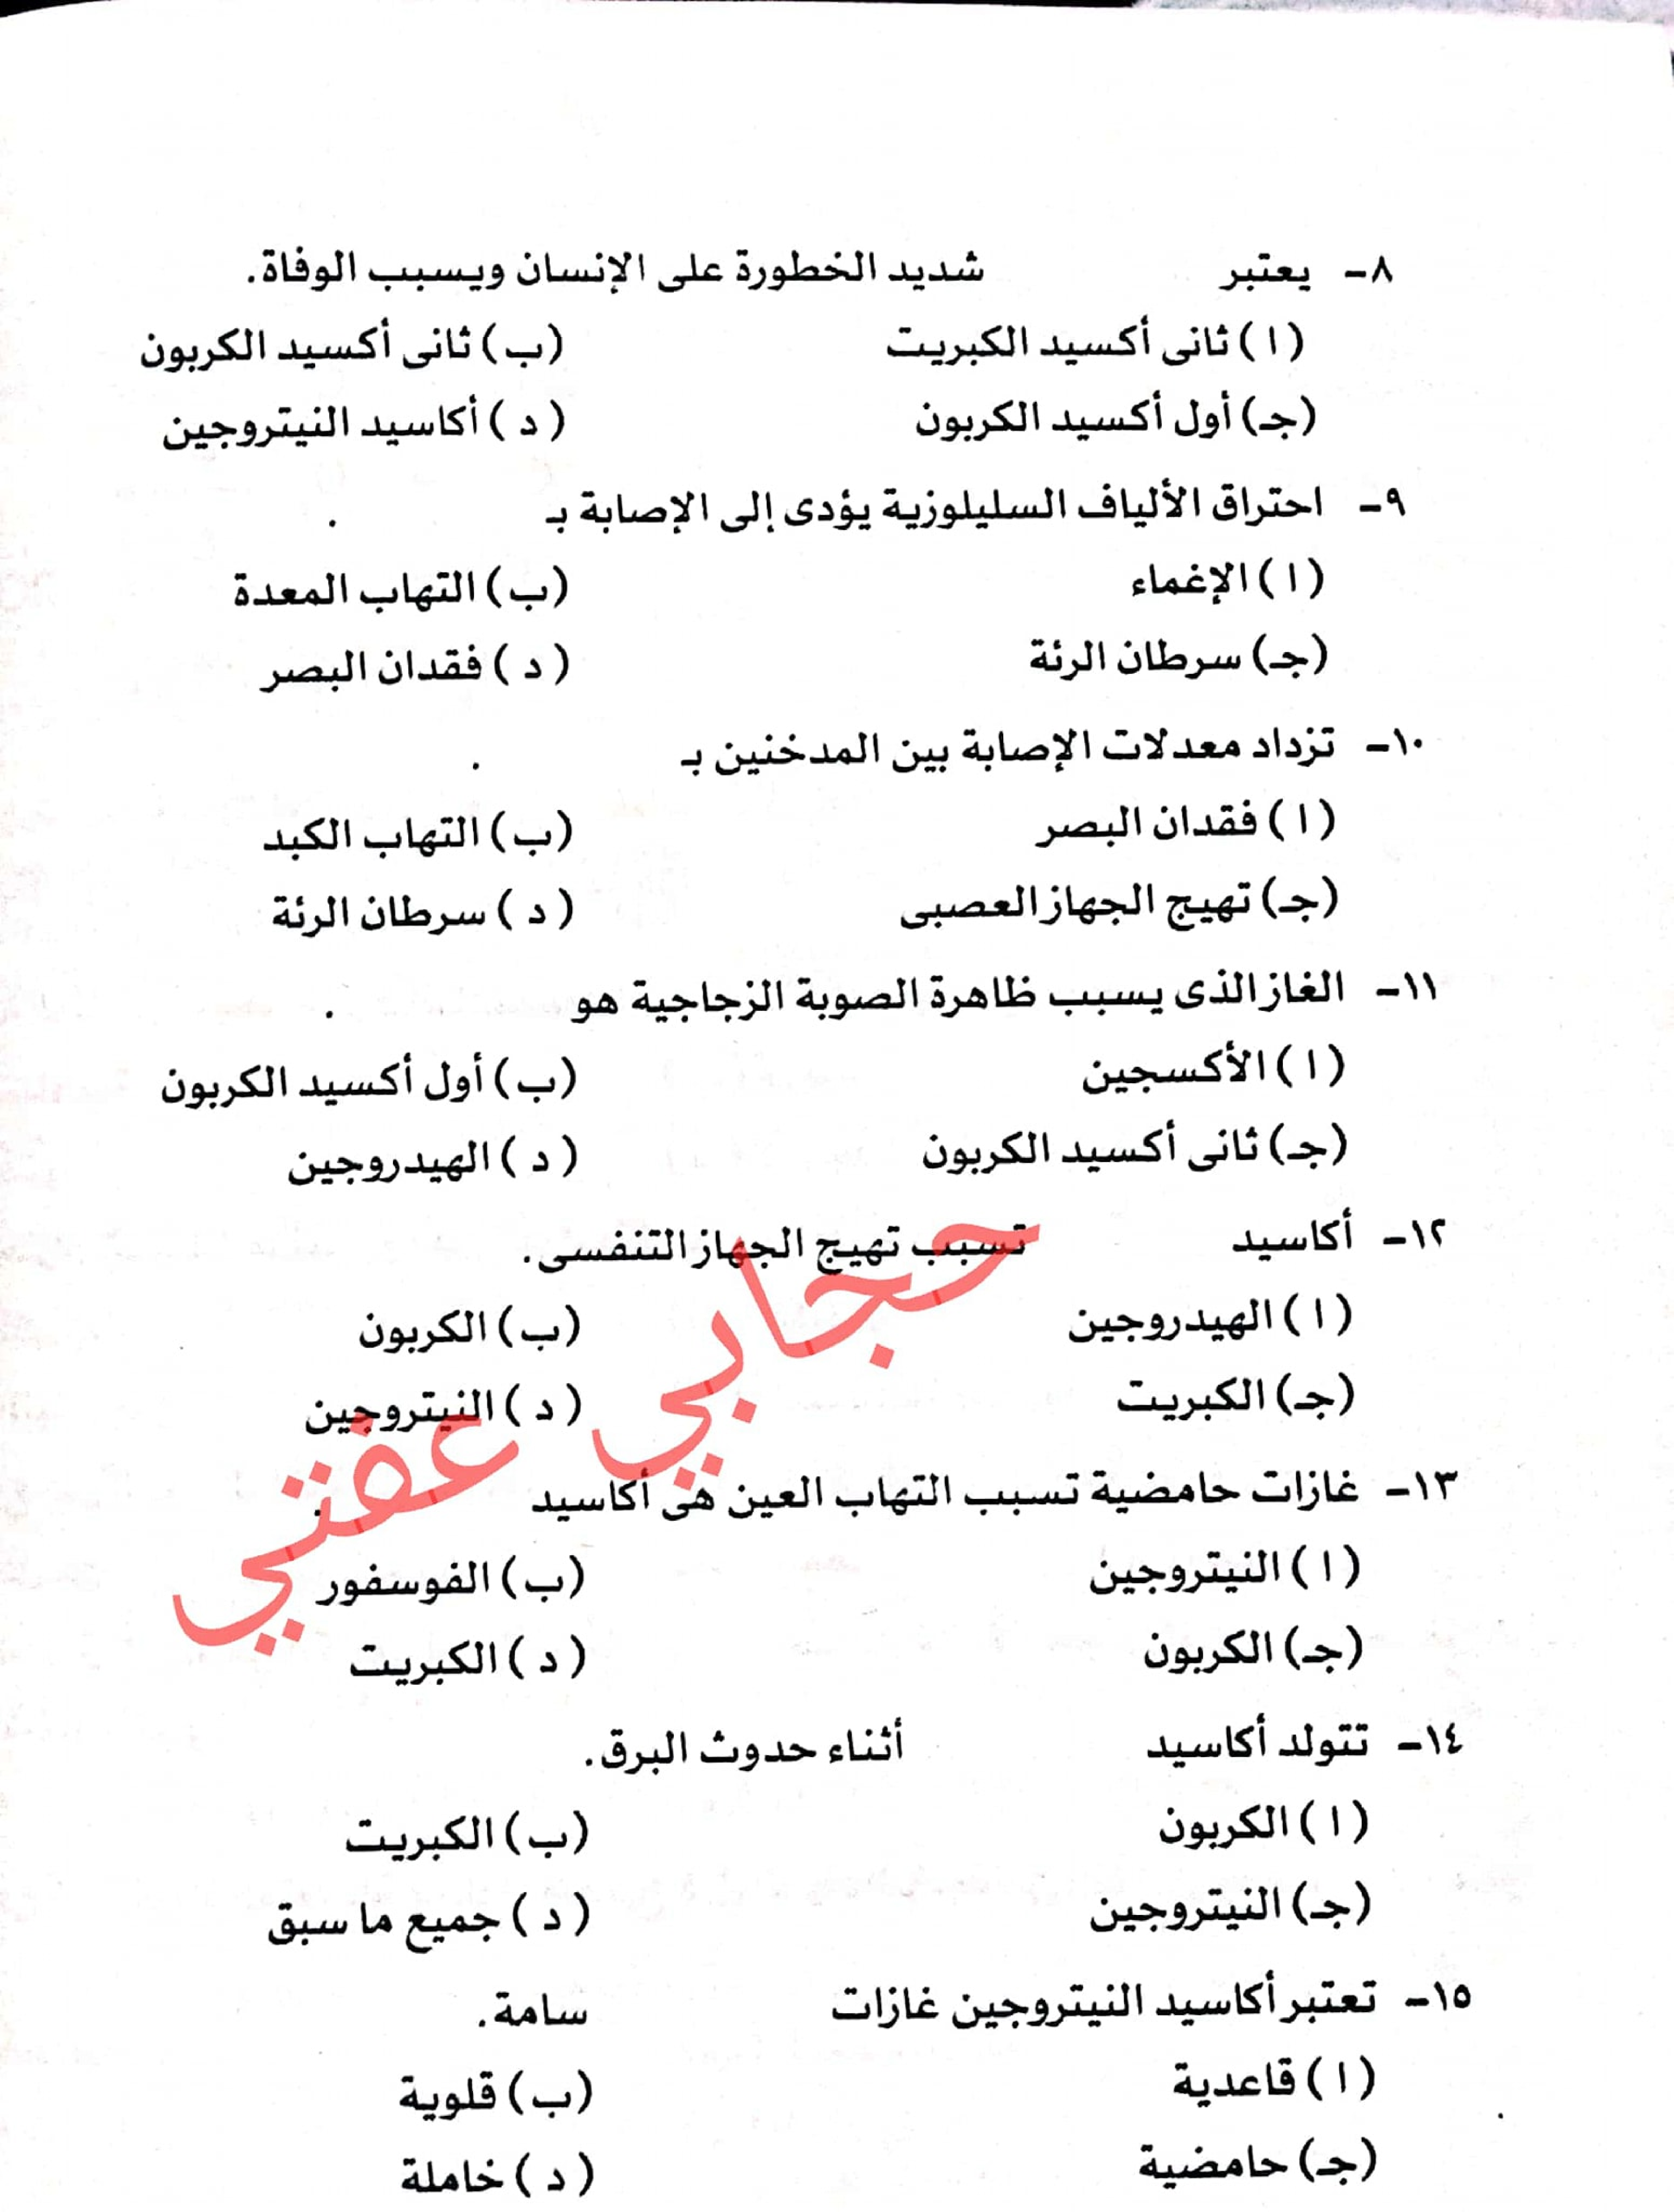 ٨- يعتبر شديد الخطورة على الإنسان ويسبب الوفاة.
(ا) ثانى أكسيد الكبريت (ب) ثانى أكسيد الكربون
(جـ) أول أكسيد الكربون (د) أكاسيد النيتروجين
٩- احتراق الألياف السليلوزية يؤدى إلى الإصابة بـ .
(ا) الإغماء (ب) التهاب المعدة
(جـ) سرطان الرئة (د) فقدان البصر
١٠- تزداد معدلات الإصابة بين المدخنين بـ .
(ا) فقدان البصر (ب) التهاب الكبد
(جـ) تهيج الجهاز العصبى (د) سرطان الرئة
١١- الغاز الذى يسبب ظاهرة الصوبة الزجاجية هو .
(ا) الأكسجين (ب) أول أكسيد الكربون
(جـ) ثانى أكسيد الكربون (د) الهيدروجين
١٢- أكاسيد تسبب تهيج الجهاز التنفسى.
(ا) الهيدروجين (ب) الكربون
(جـ) الكبريت (د) النيتروجين
حجابي عفتي
١٣- غازات حامضية تسبب التهاب العين هى أكاسيد .
(ا) النيتروجين (ب) الفوسفور
(جـ) الكربون (د) الكبريت
١٤- تتولد أكاسيد أثناء حدوث البرق.
(ا) الكربون (ب) الكبريت
(جـ) النيتروجين (د) جميع ما سبق
١٥- تعتبر أكاسيد النيتروجين غازات سامة.
(ا) قاعدية (ب) قلوية
(جـ) حامضية (د) خاملة